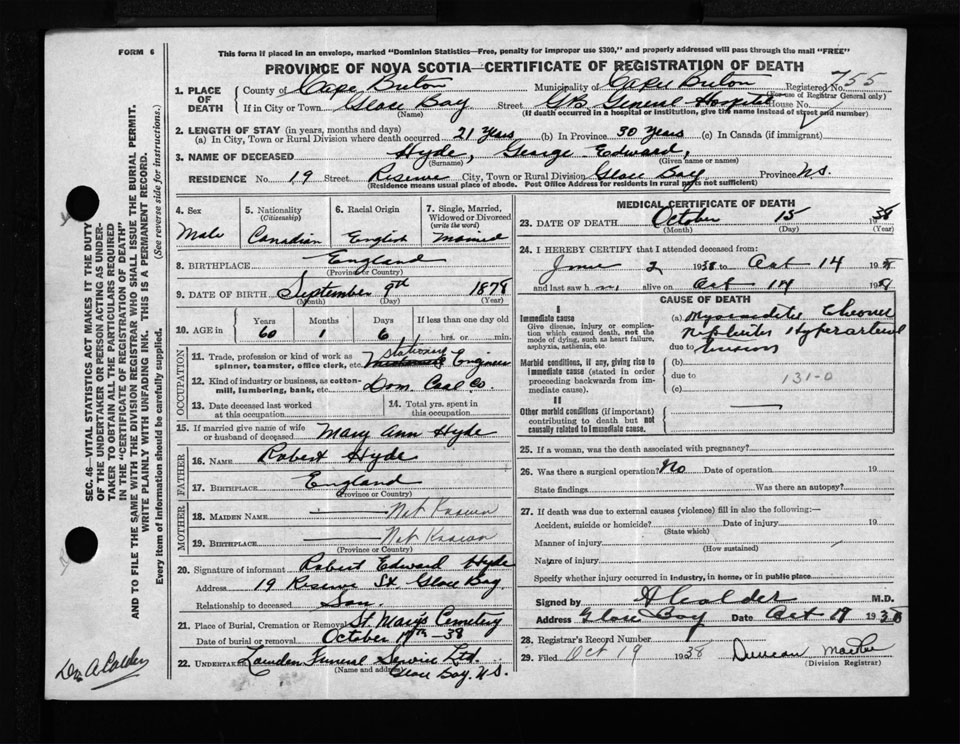 FORM 6
This form if placed in an envelope, marked "Dominion Statistics—Free, penalty for improper use $300," and properly addressed will pass through the mail "FREE"
PROVINCE OF NOVA SCOTIA—CERTIFICATE OF REGISTRATION OF DEATH
1. PLACE OF DEATH
County of Cape Breton Municipality of Cape Breton Registered No. 755
(For use of Registrar General only)
If in City or Town Glace Bay Street G.B. General Hospital House No.
(Name) (If death occurred in a hospital or institution, give the name instead of street and number)
2. LENGTH OF STAY (in years, months and days)
(a) In City, Town or Rural Division where death occurred 21 Years (b) In Province 30 Years (c) In Canada (if immigrant)
3. NAME OF DECEASED Hyde, George Edward,
(Surname) (Given name or names)
RESIDENCE No. 19 Street Reserve City, Town or Rural Division Glace Bay Province N.S.
(Residence means usual place of abode. Post Office Address for residents in rural parts not sufficient)
4. Sex Male
5. Nationality (Citizenship) Canadian
6. Racial Origin English
7. Single, Married, Widowed or Divorced (write the word) Married
8. BIRTHPLACE England
(Province or Country)
9. DATE OF BIRTH September 9th 1878
(Month) (Day) (Year)
10. AGE in Years Months Days If less than one day old
60 1 6 hrs. or min.
OCCUPATION
11. Trade, profession or kind of work as spinner, teamster, office clerk, etc. Stationary Engineer
12. Kind of industry or business, as cotton-mill, lumbering, bank, etc. Dom. Coal Co.
13. Date deceased last worked at this occupation
14. Total yrs. spent in this occupation
15. If married give name of wife or husband of deceased Mary Ann Hyde
FATHER
16. Name Robert Hyde
17. Birthplace England
(Province or Country)
MOTHER
18. Maiden Name Not Known
19. Birthplace Not Known
(Province or Country)
20. Signature of informant Robert Edward Hyde
Address 19 Reserve St. Glace Bay
Relationship to deceased Son.
21. Place of Burial, Cremation or Removal St Mary's Cemetery
Date of burial or removal October 17th-38
22. Undertaker Funeral Service Ltd.
(Name and address) Glace Bay, N.S.
MEDICAL CERTIFICATE OF DEATH
23. DATE OF DEATH October 15 1938
(Month) (Day) (Year)
24. I HEREBY CERTIFY that I attended deceased from:
June 2 1938 to Oct 14 1938
and last saw him alive on Oct 14 1938
CAUSE OF DEATH
I
Immediate cause
Give disease, injury or complication which caused death, not the mode of dying, such as heart failure, asphyxia, asthenia, etc.
(a) Myocarditis Chronic
Nephritis Hypertension
due to
Morbid conditions, if any, giving rise to immediate cause (stated in order proceeding backwards from immediate cause).
(b)
due to 131-0
(c)
II
Other morbid conditions (if important) contributing to death but not causally related to immediate cause.
25. If a woman, was the death associated with pregnancy?
26. Was there a surgical operation? No Date of operation 19
State findings Was there an autopsy?
27. If death was due to external causes (violence) fill in also the following:—
Accident, suicide or homicide? Date of injury 19
(State which)
Manner of injury
(How sustained)
Nature of injury
Specify whether injury occurred in industry, in home, or in public place
Signed by A Calder M.D.
Address Glace Bay Date Oct 19 1938
28. Registrar's Record Number
29. Filed Oct 19 1938 Duncan
(Division Registrar)
SEC. 46—VITAL STATISTICS ACT MAKES IT THE DUTY
OF THE UNDERTAKER OR PERSON ACTING AS UNDER-
TAKER TO OBTAIN ALL THE PARTICULARS REQUIRED
IN THE "CERTIFICATE OF REGISTRATION OF DEATH"
AND TO FILE THE SAME WITH THE DIVISION REGISTRAR WHO SHALL ISSUE THE BURIAL PERMIT.
WRITE PLAINLY WITH UNFADING INK. THIS IS A PERMANENT RECORD.
Every item of Information should be carefully supplied. (See reverse side for instructions.)
Dr. A Calder